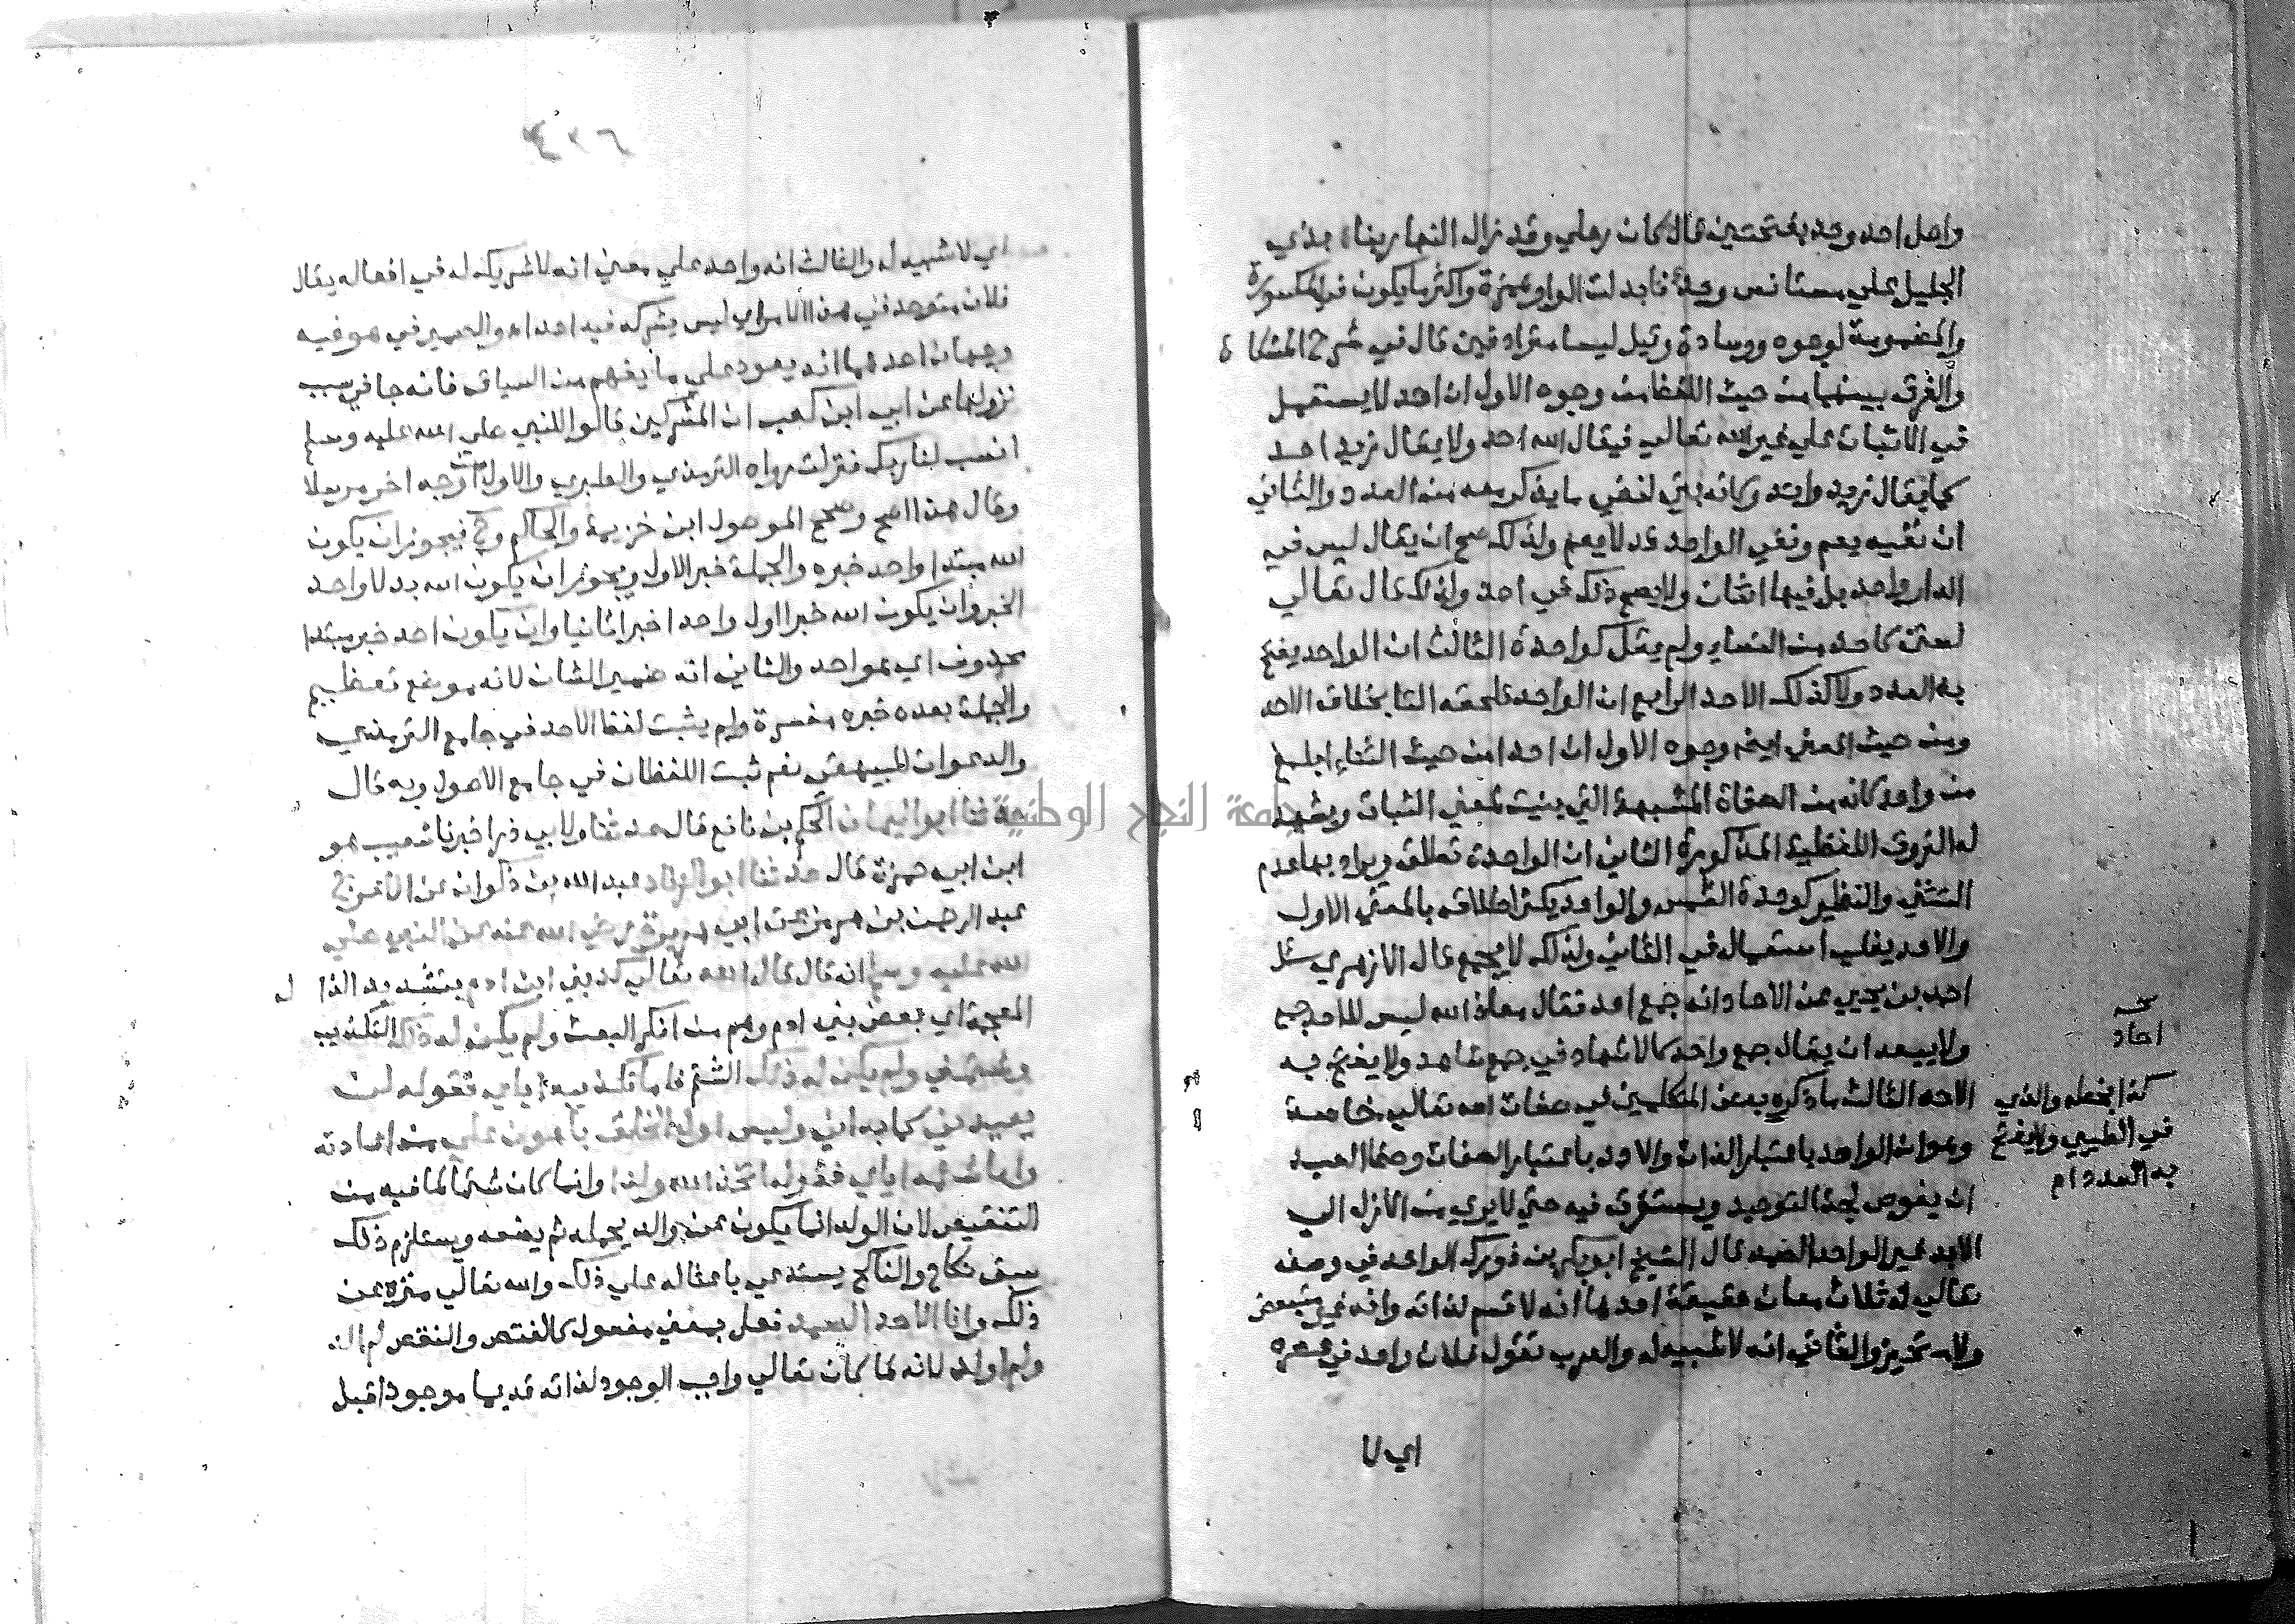 واصل احد وحد بفتحتين قال كان رحلي وقد زال النهار بنا بذي
الجليل علي مستانس وحد فابدلت الواو همزة واكثر ما يكون في المكسورة
والمضمومة لوجوه ووسادة وقيل ليسا مترادفين قال في شرح المشكاة
والفرق بينهما من حيث اللفظ من وجوه الاول ان احد لا يستعمل
في الاثبات علي غير الله تعالي فيقال الله احد ولا يقال زيد احد
كما يقال زيد واحد وكانه بني لنفي ما يذكر معه من العدد والثاني
ان نفيه يعم ونفي الواحد قد لا يعم ولذلك صح ان يقال ليس في
الدار واحد بل فيها اثنان ولا يصح ذلك في احد ولذلك قال تعالي
لستن كاحد من النساء ولم يقل كواحدة الثالث ان الواحد يفتح
به العدد ولا كذلك الاحد الرابع ان الواحد تلحقه التا بخلاف الاحد
ومن حيث المعني ايضا وجوه الاول ان احدا من حيث الثناء ابلغ
من واحد كانه من الصفات المشبهة التي بنيت لمعني الثبات ويشهد
له الفروق اللفظية المذكورة الثاني ان الواحدة تطلق ويراد بها عدم
التثني والنظير كوحدة الشمس والواحد يكثر اطلاقه بالمعني الاول
والاحد يغلب استعماله في الثاني ولذلك لا يجمع قال الازهري سئل
احمد بن يحيي عن الاحاد انه جمع احد فقال معاذ الله ليس للاحد جمع
ولا يبعد ان يقال جمع واحد كالاشهاد في جمع شاهد ولا يفتح به
الاحد الثالث ما ذكره بعض المتكلمين في صفات الله تعالي خاصة
وهو ان الواحد باعتبار الذات والاحد باعتبار الصفات وحظ العبد
ان يغوص لجة التوحيد ويستغرق فيه حتي لا يري من الازل الي
الابد غير الواحد الصمد قال الشيخ ابو بكر بن فورك الواحد في وصفه
تعالي له ثلاث معان حقيقة احدها انه لا قسم لذاته وانه غير متبعض
ولا متحيز والثاني انه لا شبيه له والعرب تقول فلان واحد في عصره
اي لا
نخسه
احاد
كذا بخطه والذي
في الطيبي ولا يفتح
به العدد ام
جامعة النجاح الوطنية
اي لا شبيه له والثالث انه واحد علي معني انه لا شريك له في افعاله يقال
فلان متوحد في هذا الامر اي ليس يشركه فيه احد اه والضمير في هو فيه
وجهان احدهما انه يعود علي ما يفهم من السياق فانه جا في سبب
نزولها عن ابي ابن كعب ان المشركين قالوا للنبي صلي الله عليه وسلم
انسب لنا ربك فنزلت رواه الترمذي والطبري والاول من وجه اخر مرسلا
وقال هذا اصح وصحح الموصول ابن خزيمة والحاكم وح فيجوز ان يكون
الله مبتدا واحد خبره والجملة خبر الاول ويجوز ان يكون الله بدلا واحد
الخبر وان يكون الله خبرا اول واحد اخبرا ثانيا وان يكون احد خبر مبتدا
محذوف اي هو احد والثاني انه ضمير الشان لانه موضع تعظيم
والجملة بعده خبره مفسرة ولم يثبت لفظ الاحد في جامع الترمذي
والدعوات للبيهقي نعم ثبت اللفظان في جامع الاصول وبه قال
حدثنا ابو اليمان الحكم بن نافع قال حدثنا ولابي ذر اخبرنا شعيب هو
ابن ابي حمزة قال حدثنا ابو الزناد عبد الله بن ذكوان عن الاعرج
عبد الرحمن بن هرمز عن ابي هريرة رضي الله عنه عن النبي صلي
الله عليه وسلم انه قال قال الله تعالي كذبني ابن ادم بتشديد الذال
المعجمة اي بعض بني ادم وهم من انكر البعث ولم يكن له ذلك التكذيب
وشتمني ولم يكن له ذلك الشتم فاما تكذيبه اياي فقوله لن
يعيدني كما بداني وليس اول الخلق باهون علي من اعادته
واما شتمه اياي فقوله اتخذ الله ولدا وانما كان شتما لما فيه من
التنقيص لان الولد انما يكون عن والد يحمله ثم يضعه ويستلزم ذلك
سبق نكاح والناكح يستدعي باعثا له علي ذلك والله تعالي منزه عن
ذلك وانا الاحد الصمد فعل بمعني مفعول كالقنص والنقص لم الد
ولم اولد لانه لما كان تعالي واجب الوجود لذاته قديما موجودا قبل